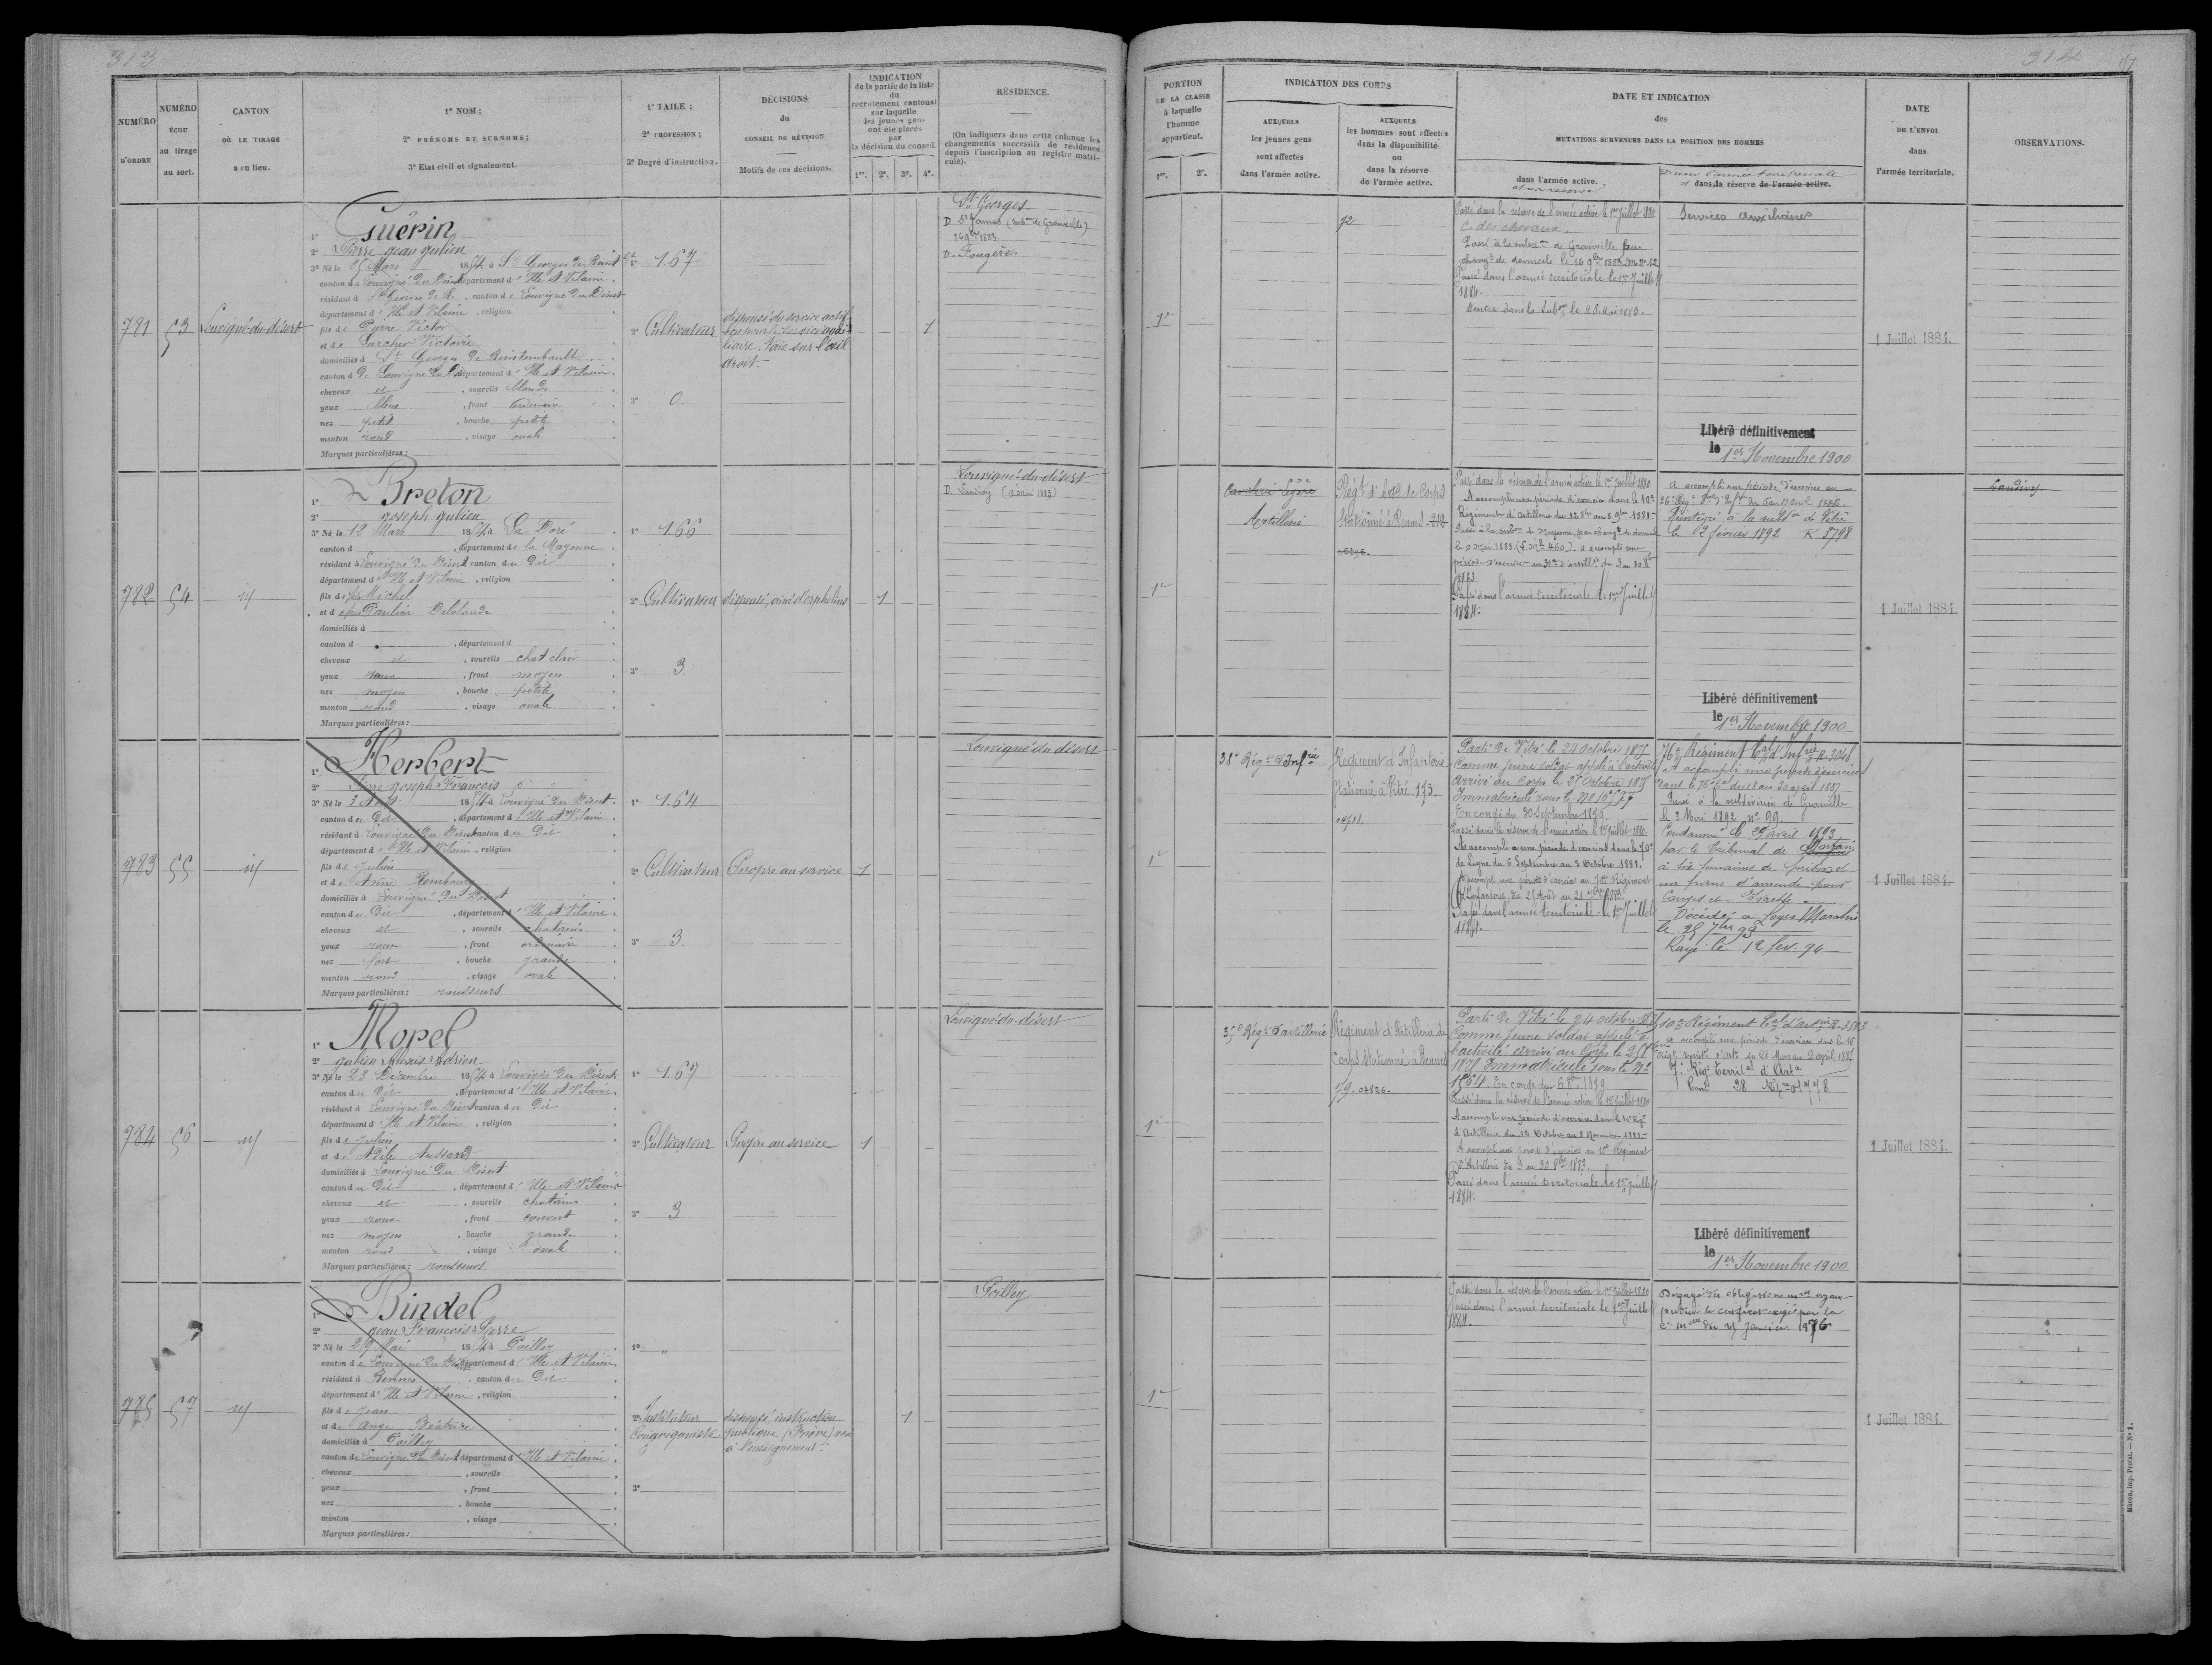 313
NUMÉRO
D'ORDRE
NUMÉRO
ÉCHU
au tirage
au sort.
CANTON
OÙ LE TIRAGE
a eu lieu.
1° NOM ;
2° PRÉNOMS ET SURNOMS ;
3° Etat civil et signalement.
1° TAILE ;
2° PROFESSION ;
3° Degré d'instruction.
DÉCISIONS
du
CONSEIL DE RÉVISION
Motifs de ces décisions.
INDICATION
de la partie de la liste
du
recrutement cantonal
sur laquelle
les jeunes gens
ont été placés
par
la décision du conseil
1re. 2e. 3e. 4e.
RÉSIDENCE.
(On indiquera dans cette colonne les
changements successifs de résidence
depuis l'inscription au registre matri-
cule).
781
53
Louvigné-du-désert
1° Guérin
2° Pierre Jean Julien
3° Né le 25 Mars 1854 à St Georges de Reint
canton de Louvigné du Désert département d'Ille et Vilaine
résidant à St Georges de R. canton de Louvigné du Désert
département d'Ille et Vilaine, religion
fils de Pierre Victor
et de Larcher Victoire
domiciliés à St Georges de Reintembault
canton de Louvigné du Dés département d'Ille et Vilaine
cheveux et , sourcils blonds
yeux bleus , front ordinaire
nez petit , bouche petite
menton rond , visage ovale
Marques particulières :
1° 1.67
2° Cultivateur
3° 0
dispensé du service actif
bon pour le service auxi-
liaire. Taie sur l'œil
droit.
1
St Georges.
D St James (subon de Granville)
16 9bre 1883
D. Fougères.
782
54
id
1° Breton
2° Joseph Julien
3° Né le 12 Mars 1854 à La Doré
canton d , département de la Mayenne
résidant à Louvigné du Désert canton du Dit
département d'Ille et Vilaine , religion
fils de feu Michel
et de feue Pauline Delalande
domiciliés à
canton d , département d
cheveux et , sourcils chat clair
yeux roux , front moyen
nez moyen , bouche petite
menton rond , visage ovale
Marques particulières :
1° 1.66
2° Cultivateur
3° 3
dispensé, ainé d'orphelins
1
Louvigné-du-désert
D. Landivy (9 mai 1883)
783
55
id
1° Herbert
2° Pierre Joseph François
3° Né le 3 Août 1854 à Louvigné du Désert
canton du Dit , département d'Ille et Vilaine
résidant à Louvigné du Désert canton du Dit
département d'Ille et Vilaine, religion
fils de Julien
et de Anne
domiciliés à Louvigné du Désert
canton du Dit , département d'Ille et Vilaine
cheveux et , sourcils chatains
yeux roux , front ordinaire
nez fort , bouche grande
menton rond , visage ovale
Marques particulières : rousseurs
1° 1.64
2° Cultivateur
3° 3
Propre au service
1
Louvigné du désert
784
56
id
1° Morel
2° Julien Adrien
3° Né le 23 Décembre 1854 à Louvigné du Désert
canton du Dit , département d'Ille et Vilaine
résidant à Louvigné du Désert canton du Dit
département d'Ille et Vilaine , religion
fils de Julien
et de Adèle
domiciliés à Louvigné du Désert
canton du Dit , département d'Ille et Vilaine
cheveux et , sourcils chatains
yeux roux , front couvert
nez moyen , bouche grande
menton rond , visage ovale
Marques particulières : rousseurs
1° 1.67
2° Cultivateur
3° 3
Propre au service
1
Louvigné-du-désert
785
57
id
1° Bindel
2° Jean François Pierre
3° Né le 29 Mai 1854 à Poilley
canton de Louvigné du Désert département d'Ille et Vilaine
résidant à Rennes , canton du Dit
département d'Ille et Vilaine , religion
fils de Jean
et de Ange Béatrice
domiciliés à Poilley
canton de Louvigné du Désert département d'Ille et Vilaine
cheveux , sourcils
yeux , front
nez , bouche
menton , visage
Marques particulières :
1° "
2° Instituteur
Congréganiste
3°
dispensé instruction
publique (Frère)
à l'enseignement.
1
Poilley
314
PORTION
DE LA CLASSE
à laquelle
l'homme
appartient.
1re. 2e.
INDICATION DES CORPS
AUXQUELS
les jeunes gens
sont affectés
dans l'armée active.
AUXQUELS
les hommes sont affectés
dans la disponibilité
ou
dans la réserve
de l'armée active.
DATE ET INDICATION
des
MUTATIONS SURVENUES DANS LA POSITION DES HOMMES
dans l'armée active.
et sa réserve
dans l'armée territoriale
et dans la réserve de l'armée active.
DATE
DE L'ENVOI
dans
l'armée territoriale.
OBSERVATIONS.
1e
72
Passé dans la réserve de l'armée active le 1er Juillet 1880
C. des chevaux,
Passé à la subdon de Granville par
changt de domicile le 16 9bre 1883
Passé dans l'armée territoriale le 1er Juillet
1884.
Rentré dans la Subon le 25 Mai 1885.
Services auxiliaires
Libéré définitivement
le 1er Novembre 1900
1 Juillet 1884.
1e
Cavalerie légère
Artillerie
Régt d'Artie de Corps
stationné à Rennes
Passé dans la réserve de l'armée active le 1er Juillet 1880
A accompli une période d'exercice dans le 10e
Régiment d'Artillerie du 12 8bre au 8 9bre 1881
Passé à la subon de Mayenne par changt de domicile
le 9 Mai 1883. (460). a accompli une
période d'exercice au 31e d'artillie du 3 au 30 8bre
1883
Passé dans l'armée territoriale le 1er Juillet
1884.
A accompli une période d'exercice au
26e Régt d'Inf du 5 au 17 avril 1886.
Réintégré à la subon de Vitré
le 2 février 1892 R 3798
Libéré définitivement
le 1er Novembre 1900
1 Juillet 1884.
Landivy
1e
38e Régt d'Infrie
Régiment d'Infanterie
stationné à Vitré. 173.
Parti de Vitré le 24 Octobre 1875
Comme jeune soldat appelé à l'activité
arrivé au Corps le 25 Octobre 1875
Immatriculé sous le No
En congé du 30 Septembre 1879
Passé dans la réserve de l'armée active le 1er Juillet 1880.
A accompli une période d'exercice dans le 70e
de Ligne du 6 Septembre au 3 Octobre 1881.
A accompli une période d'exercice au 70e Régiment
d'Infanterie du 25 Août au 21 7bre 1883.
Passé dans l'armée territoriale le 1er Juillet
1884.
76e Régiment tal d'Infrie R. 3048
A accompli une période d'exercice
dans le 76e tal du 11 au 23 avril 1887
Passé à la subdivision de Granville
le 2 Mars 1892 no 99.
Condamné le 29 avril 1893
par le tribunal de Mortain
à six semaines de prison et
un franc d'amende pour
Coups et ivresse
Décédé à Loges Marchis
le 25 7bre 93
Rayé le 12 fev. 94
1 Juillet 1884.
1e
35e Régt d'artillerie
Régiment d'Artillerie de
Corps stationné à Rennes
79. 04826.
Parti de Vitré le 24 octobre 1875
Comme jeune soldat appelé à
l'activité arrivé au Corps le 25 8bre
1875 Immatriculé sous le No
1564. En congé du 6 8bre 1879
Passé dans la réserve de l'armée active le 1er Juillet 1880
A accompli une période d'exercice dans le 10e Régt
d'Artillerie du 12 Octobre au 8 Novembre 1881
A accompli une période d'exercice au 10e Régiment
d'Artillerie du 3 au 30 8bre 1883.
Passé dans l'armée territoriale le 1er Juillet
1884.
10e Régiment tal d'artrie
a accompli une période d'exercice dans le 10e
Régt territ. d'Artie du 21 Mars au 2 avril 1887
7e Régt Territal d'Arta
Libéré définitivement
le 1er Novembre 1900
1 Juillet 1884.
1e
Passé dans la réserve de l'armée active le 1er Juillet 1880
Passé dans l'armée territoriale le 1er Juillet
1884.
Dégagé des obligations mres ayant
produit le certificat exigé par la
C. mlle du 25 Janvier 1876
1 Juillet 1884.
Mâcon, imp. Protat. — No 1.